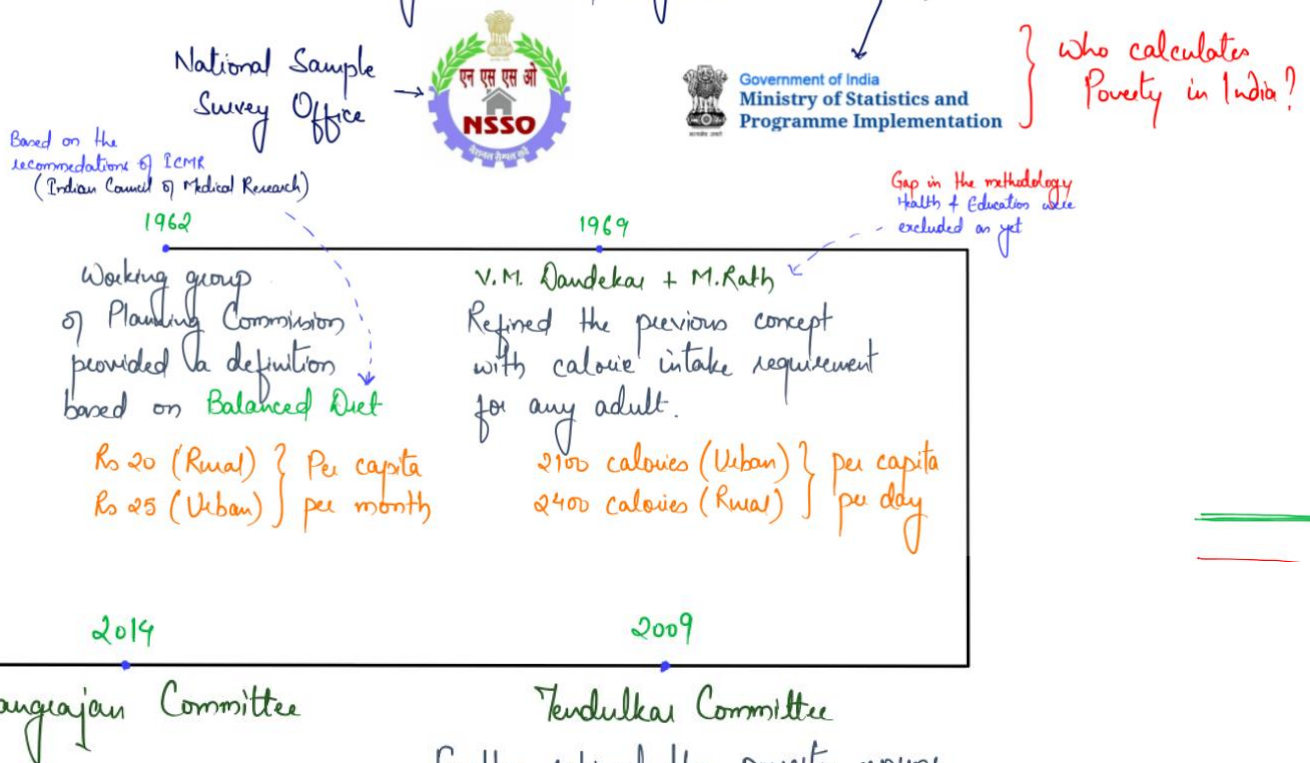 National Sample
Survey Office
एन एस एस ओ
NSSO
Government of India
Ministry of Statistics and
Programme Implementation
Who calculates
Poverty in India?
Based on the
recommedations of ICMR
(Indian Council of Medical Research)
Gap in the methodology
Health & Education were
excluded as yet
1962
Working group
of Planning Commission
provided a definition
based on Balanced Diet
Rs 20 (Rural)
Rs 25 (Urban)
Per capita
per month
1969
V.M. Dandekar + M.Rath
Refined the previous concept
with calorie intake requirement
for any adult.
2100 calories (Urban)
2400 calories (Rural)
per capita
per day
2014
angrajan Committee
2009
Tendulkar Committee